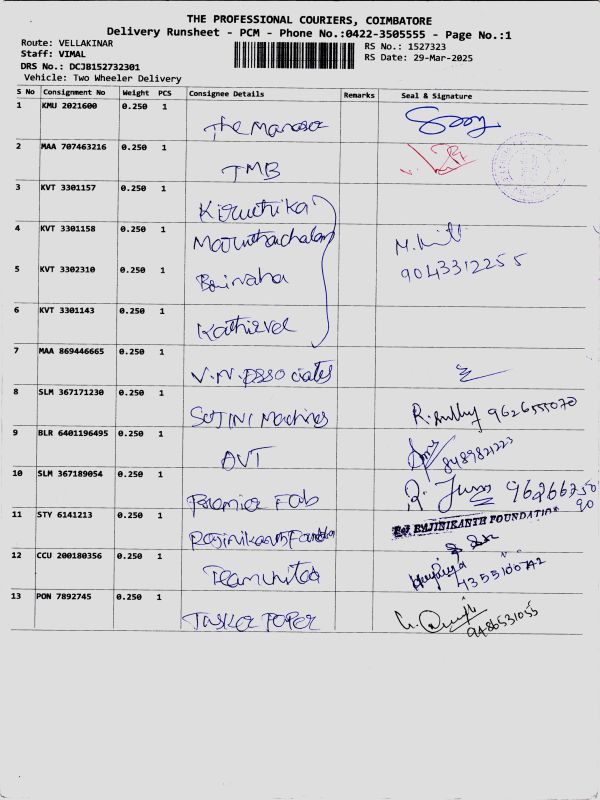 THE PROFESSIONAL COURIERS, COIMBATORE
Delivery Runsheet - PCM - Phone No.:0422-3505555 - Page No.:1
Route: VELLAKINAR
RS No.: 1527323
Staff: VIMAL
RS Date: 29-Mar-2025
DRS No.: DCJB152732301
Vehicle: Two Wheeler Delivery
S No Consignment No Weight PCS Consignee Details Remarks Seal & Signature
1 KMU 2021600 0.250 1 The Manasa
2 MAA 707463216 0.250 1 TMB
3 KVT 3301157 0.250 1 Kiruthika
4 KVT 3301158 0.250 1 Maruthachalam
5 KVT 3302310 0.250 1
9043312255
6 KVT 3301143 0.250 1 Kathirvel
7 MAA 869446665 0.250 1 V.N. Associates
8 SLM 367171230 0.250 1 Machines 9626555070
9 BLR 6401196495 0.250 1 8489821223
10 SLM 367189054 0.250 1 Premier Fab
11 STY 6141213 0.250 1 Rajinikanth Foundation RAJINIKANTH FOUNDATION
12 CCU 200180356 0.250 1
13 PON 7892745 0.250 1 9486531055